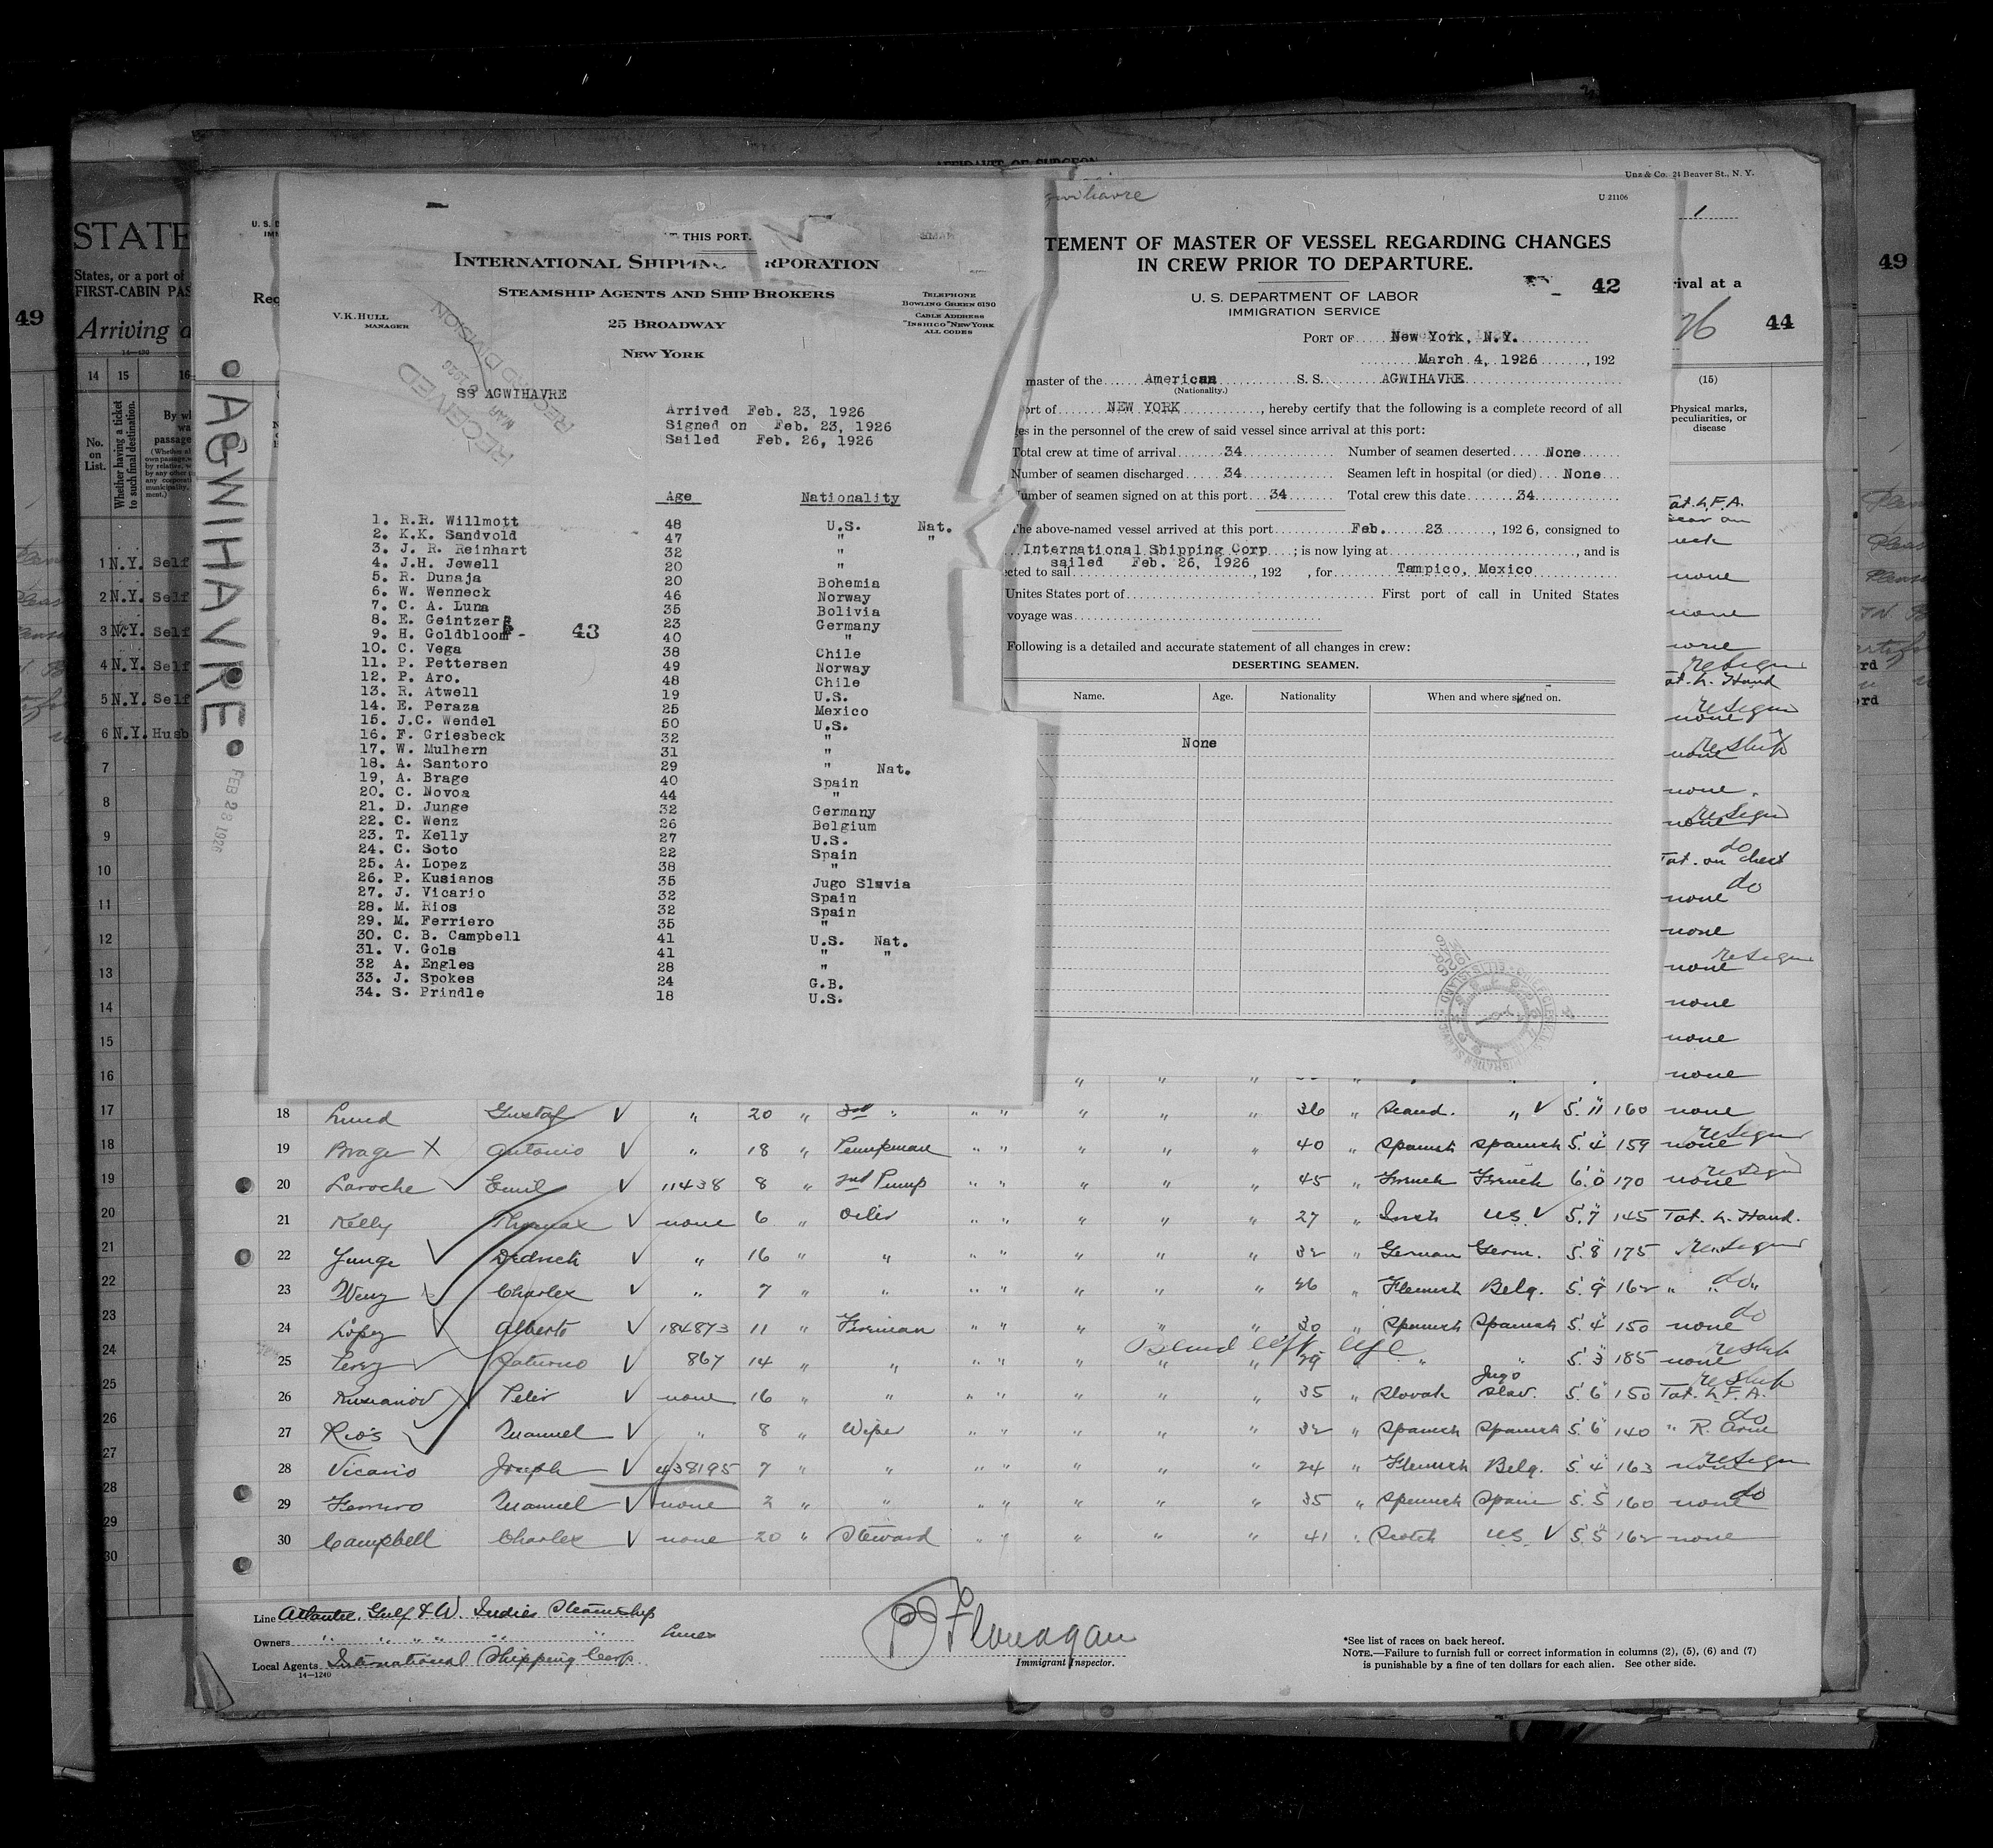 AFFIDAVIT OF SURGEON
49
STATE
States, or a port of
FIRST-CABIN PAS
Arriving a
14—430
14 15 16
No. on List.
Whether having a ticket to such final destination.
1 N.Y. Self
2 N.Y. Self
3 N.Y. Self
4 N.Y. Self
5 N.Y. Self
6 N.Y. Husb
7
8
9
10
11
12
13
14
15
16
17
18
19
20
21
22
23
24
25
26
27
28
29
30
AGWIHAVRE
FEB 28 1926
THIS PORT.
INTERNATIONAL SHIPPING CORPORATION
STEAMSHIP AGENTS AND SHIP BROKERS
V.K. HULL
MANAGER
25 BROADWAY
NEW YORK
TELEPHONE
BOWLING GREEN 6190
CABLE ADDRESS
"INSHICO" NEW YORK
ALL CODES
RECEIVED
MAR
RECORD DIVISION
SS AGWIHAVRE
Arrived Feb. 23, 1926
Signed on Feb. 23, 1926
Sailed Feb. 26, 1926
Age Nationality
1. R.R. Willmott 48 U.S. Nat.
2. K.K. Sandvold 47 " "
3. J. R. Reinhart 32 "
4. J.H. Jewell 20 "
5. R. Dunaja 20 Bohemia
6. W. Wenneck 46 Norway
7. C. A. Luna 35 Bolivia
8. E. Geintzer 23 Germany
9. H. Goldbloom - 40 "
43
10. C. Vega 38 Chile
11. P. Pettersen 49 Norway
12. P. Aro. 48 Chile
13. R. Atwell 19 U.S.
14. E. Peraza 25 Mexico
15. J.C. Wendel 50 U.S.
16. F. Griesbeck 32 "
17. W. Mulhern 31 "
18. A. Santoro 29 " Nat.
19, A. Brage 40 Spain
20. C. Novoa 44 "
21. D. Junge 32 Germany
22. C. Wenz 26 Belgium
23. T. Kelly 27 U.S.
24. C. Soto 22 Spain
25. A. Lopez 38 "
26. P. Kusianos 35 Jugo Slavia
27. J. Vicario 32 Spain
28. M. Rios 32 Spain
29. M. Ferriero 35 "
30. C. B. Campbell 41 U.S. Nat.
31. V. Gols 41 " "
32 A. Engles 28 "
33. J. Spokes 24 G.B.
34. S. Prindle 18 U.S.
Unz & Co. 24 Beaver St., N. Y.
U 21106
TEMENT OF MASTER OF VESSEL REGARDING CHANGES
IN CREW PRIOR TO DEPARTURE.
42
U. S. DEPARTMENT OF LABOR
IMMIGRATION SERVICE
PORT OF New York, N.Y.
March 4, 1926, 192
master of the American S. S. AGWIHAVRE
(Nationality.)
ort of NEW YORK, hereby certify that the following is a complete record of all
ges in the personnel of the crew of said vessel since arrival at this port:
Total crew at time of arrival 34 Number of seamen deserted None
Number of seamen discharged 34 Seamen left in hospital (or died) None
Number of seamen signed on at this port 34 Total crew this date 34
The above-named vessel arrived at this port Feb. 23, 1926, consigned to
International Shipping Corp; is now lying at, and is
cted to sail sailed Feb. 26, 1926, 192 , for Tampico, Mexico
Unites States port of First port of call in United States
voyage was
Following is a detailed and accurate statement of all changes in crew:
DESERTING SEAMEN.
Name. Age. Nationality When and where signed on.
None
1
rival at a
44
49
(15)
Physical marks, peculiarities, or disease
18 Lund Gustaf V " 20 " 3rd " " " " " " 36 " Scand. " V 5'.11" 160 none
19 Brage X Antonio V " 18 " Pumpman " " " " " 40 " Spanish Spanish 5'.4" 159 none resign
20 Laroche Emil V 11438 8 " 2nd Pump " " " " " 45 " French French 6'.0" 170 none resign
21 Kelly Thomas V none 6 " Oiler " " " " " 27 " Irish US V 5'.7" 145 Tat. L. Hand.
22 Junge Dedrich V " 16 " " " " " " " 32 " German Germ. 5'.8" 175 resign
23 Wenz Charles V " 7 " " " " " " " 26 " Flemish Belg. 5'.9" 162 " do "
24 Lopez Alberto V 184873 11 " Fireman " " " " " 30 " Spanish Spanish 5'.4" 150 none do
Blind left eye
25 Perez Saturno V 867 14 " " " " " " " 29 " " " 5'.3" 185 none reship
26 Kusianov Peter V none 16 " " " " " " " 35 " Slovak Jugo Slav. 5'.6" 150 Tat. L. F. A. reship
27 Rios Manuel V " 8 " Wiper " " " " " 32 " Spanish Spanish 5'.6" 140 " R. Arm do
28 Vicario Joseph V 438195 7 " " " " " " " 24 " Flemish Belg. 5'.4" 163 none resign
29 Ferriro Manuel V none 2 " " " " " " " 35 " Spanish Spain 5'.5" 160 none do
30 Campbell Charles V none 20 " Steward " " " " " 41 " Scotch US V 5'.5" 162 none
Line Atlantic, Gulf & W. Indies Steamship Lines
Owners " " " " " "
Local Agents International Shipping Corp.
14—1240
Flanagan
Immigrant Inspector.
*See list of races on back hereof.
NOTE.—Failure to furnish full or correct information in columns (2), (5), (6) and (7)
is punishable by a fine of ten dollars for each alien. See other side.